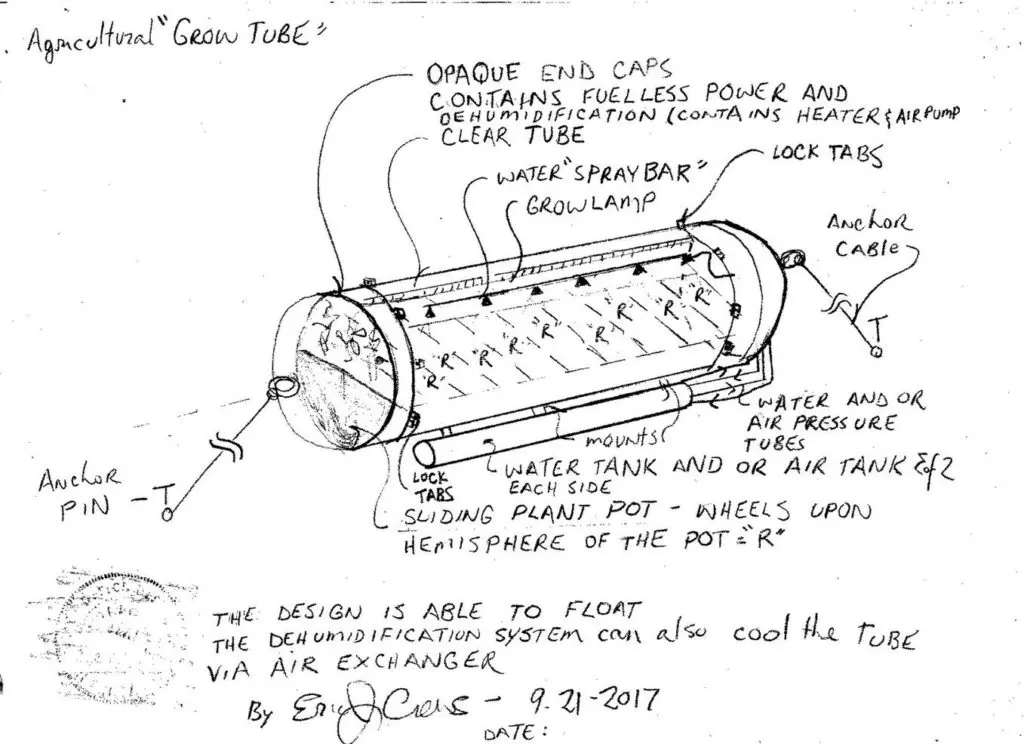 Agricultural "GROW TUBE"
OPAQUE END CAPS
CONTAINS FUELLESS POWER AND
DEHUMIDIFICATION (CONTAINS HEATER & AIR PUMP
CLEAR TUBE
LOCK TABS
WATER "SPRAY BAR"
GROW LAMP
ANCHOR
CABLE
"R" "R" "R" "R" "R" "R" "R" "R" "R"
WATER AND OR
AIR PRESSURE
TUBES
MOUNTS
WATER TANK AND OR AIR TANK
EACH SIDE
LOCK
TABS
ANCHOR
PIN
SLIDING PLANT POT - WHEELS UPON
HEMISPHERE OF THE POT = "R"
THE DESIGN IS ABLE TO FLOAT
THE DEHUMIDIFICATION SYSTEM can also cool the TUBE
VIA AIR EXCHANGER
By Eric J - 9.21-2017
DATE: